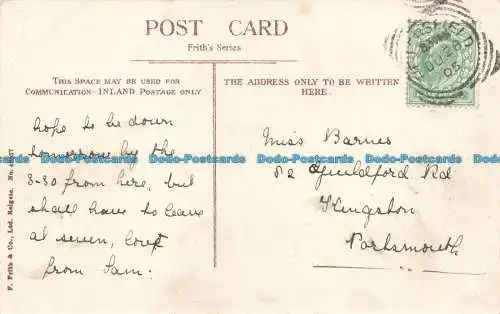 POST CARD
Frith's Series
THIS SPACE MAY BE USED FOR
COMMUNICATION—INLAND POSTAGE ONLY
THE ADDRESS ONLY TO BE WRITTEN
HERE.
hope to be down
tomorrow by the
8-30 from here, but
shall have to leave
at seven, love
from Sam.
Miss Barnes
82 Guildford Rd
Kingston
Portsmouth
PETERSFIELD
JU 28
05
F. Frith & Co., Ltd. Reigate.
Dodo-Postcards